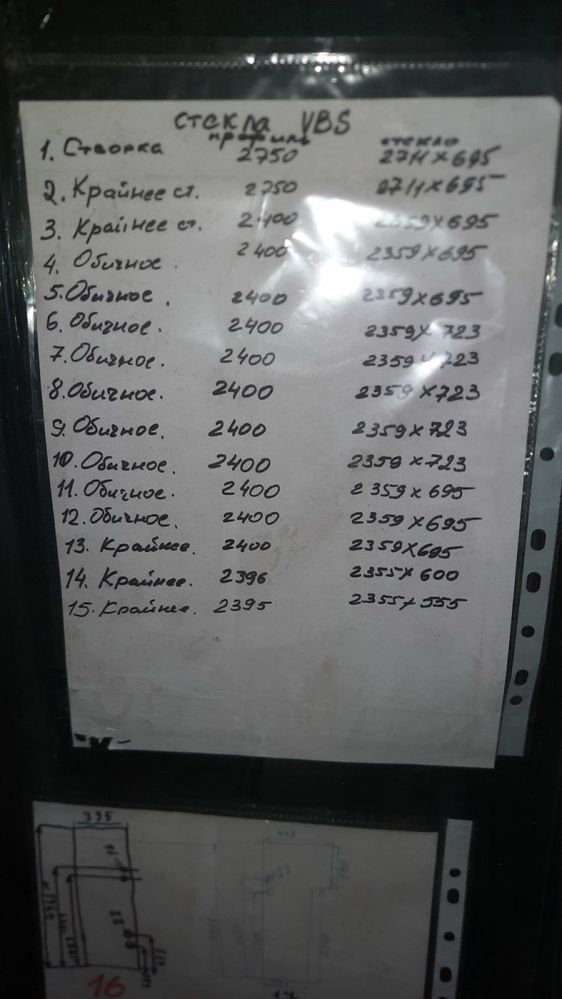 стекла VBS
профиль стекло
1. Створка 2750 2711×695
2. Крайнее ст. 2750 2711×695
3. Крайнее ст. 2400 2359×695
4. Обичное. 2400 2359×695
5. Обичное. 2400 2359×695
6. Обичное. 2400 2359×723
7. Обичное. 2400 2359×723
8. Обичное. 2400 2359×723
9. Обичное. 2400 2359×723
10. Обичное. 2400 2359×723
11. Обичное. 2400 2359×695
12. Обичное. 2400 2359×695
13. Крайнее. 2400 2359×695
14. Крайнее. 2396 2355×600
15. Крайнее. 2395 2355×555
395
16